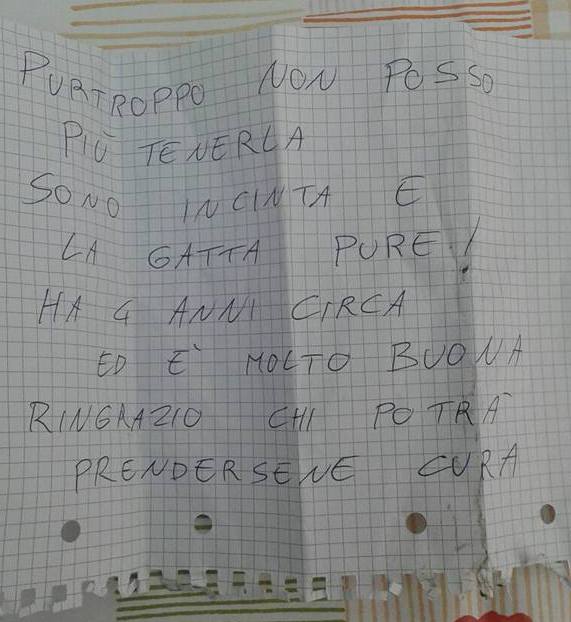 PURTROPPO NON POSSO
PIÙ TENERLA
SONO INCINTA E
LA GATTA PURE!
HA 4 ANNI CIRCA
ED E' MOLTO BUONA
RINGRAZIO CHI POTRÀ
PRENDERSENE CURA